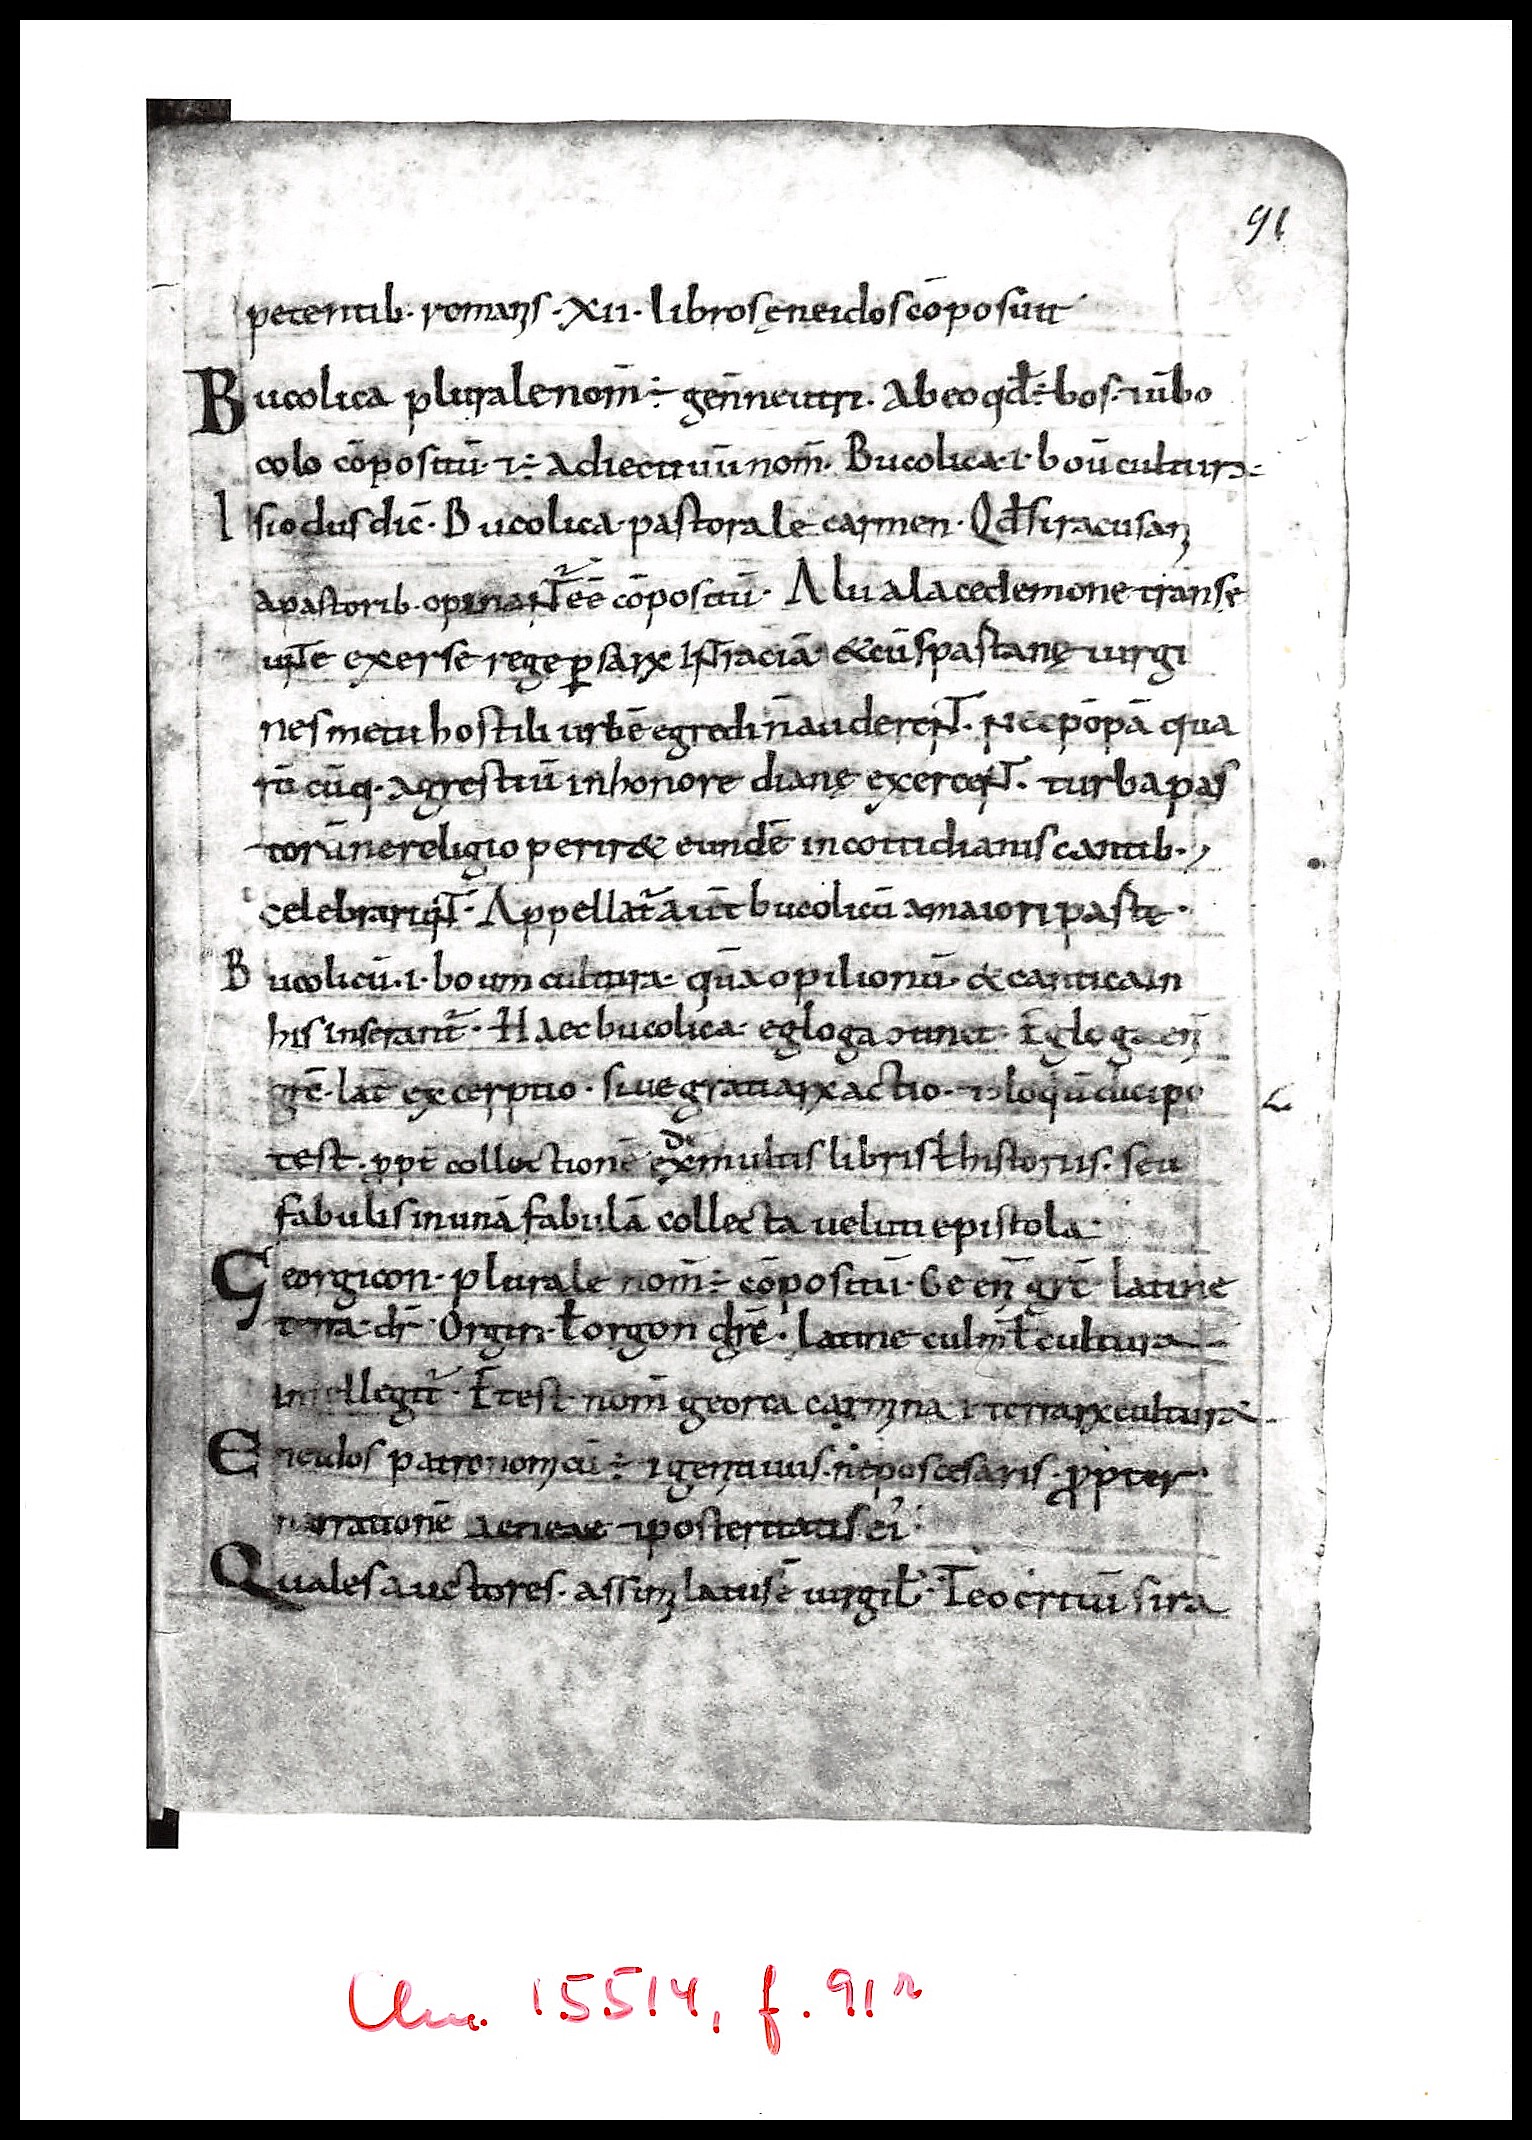 91
petentib· romanis· XII· libros ęneidos cōposuit
Bucolica plurale nom̄ ÷ gen̄ neutri. Ab eo qđ ÷ bos· ut̄ bo
colo cōpositū· ÷ adiectivū nom̄. Bucolica· i· boū cultura
Isiodus dic̄· Bucolica· pastorale carmen· Qđ siracusan
a pastorib· opinant ēē cōpositū· Alii a lacedemone transe
unte exerse rege persarum In traciā· & cū spastanę virgi
nes metu hostili urbē egredi n̄ auderent. Nec pōpā qua
rū cūq· agrestiū in honore dianę exercent. turba pas
torū ne religio perir& eundē in cottidianis cantib·
celebrarunt· Appellat̄ aut̄ bucolicū a maiori parte·
Bucolicū· i· boum cultura· quā opilionū· & cantica in
his inserant̄· Haec bucolica· egloga· Egloga en̄
gre· lat̄ excerptio· sive gratiarum actio· loqū dici po
test· ppt̄ collectionē ex de multis libris ł historiis· seu
fabulis in unā fabulā collecta veluti epistola·
Georgicon· plurale nom̄ ÷ cōpositū· Ge en̄ grē latine
terra dr̄ Orgin· ł orgon grē· latine culmen ł cultura
intellegit̄· Et est nom̄ georca carmina i terrarum cultura
Eneidos patronomicū ÷ genitivus· nepos cesaris· ppter
narrationē aeneae posteritatis ei·
Quales auctores· assimilatus ē virgil· Teocritū sira
Clm. 15514, f. 91r